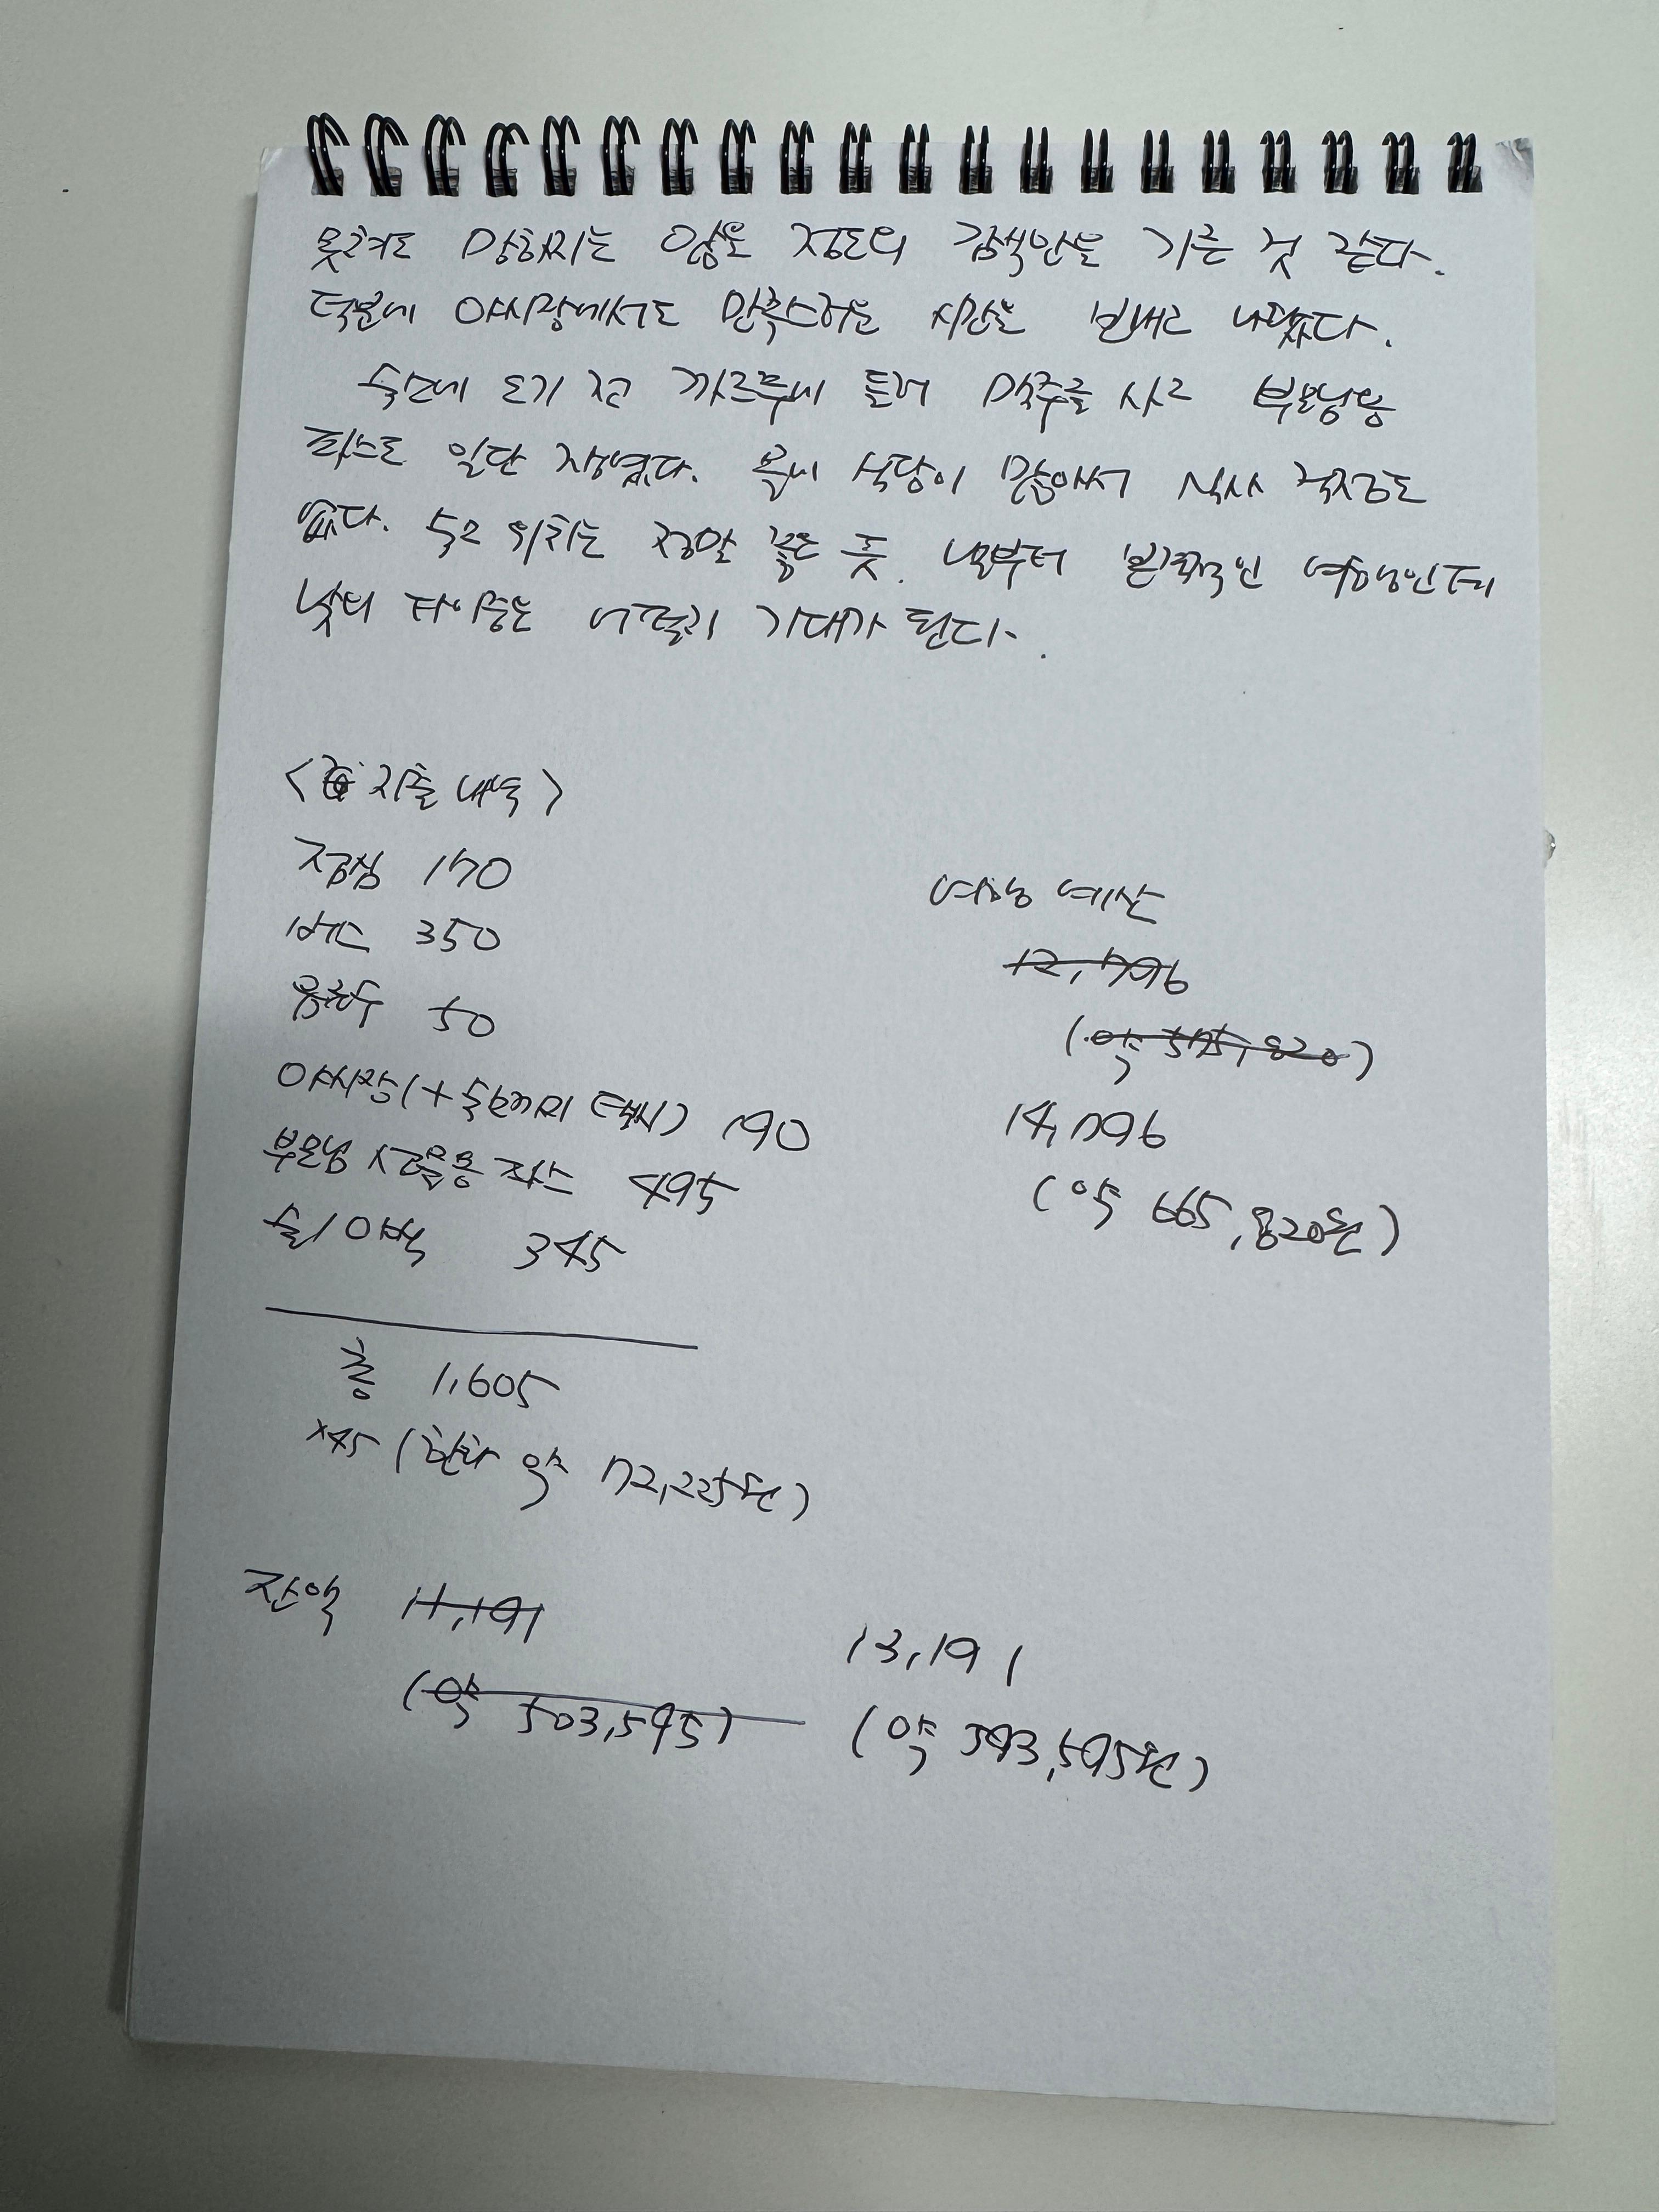 못해도 망하지는 않을 정도의 검색안을 기른 것 같다.
덕분에 야시장에서도 만족스러운 시간을 보내고 나왔다.
숙소에 오기 전 까르푸에 들러 맥주를 사고 부모님용
파스도 일단 쟁였다. 주변에 식당이 많아서 식사 걱정도
없다. 숙소 위치는 정말 좋은 듯. 내일부터 본격적인 여행인데
낮의 타이중은 어떨지 기대가 된다.
< 지출 내역 >
점심 170
버스 350
음료수 50
야시장(+숙소까지 택시) 190
부모님 선물용 파스 495
술/야식 345
총 1,605
×45 (한화 약 72,225원)
여행 예산
12,796
(약 575,820)
14,796
(약 665,820원)
잔액 11,191
(약 503,595)
13,191
(약 593,595원)